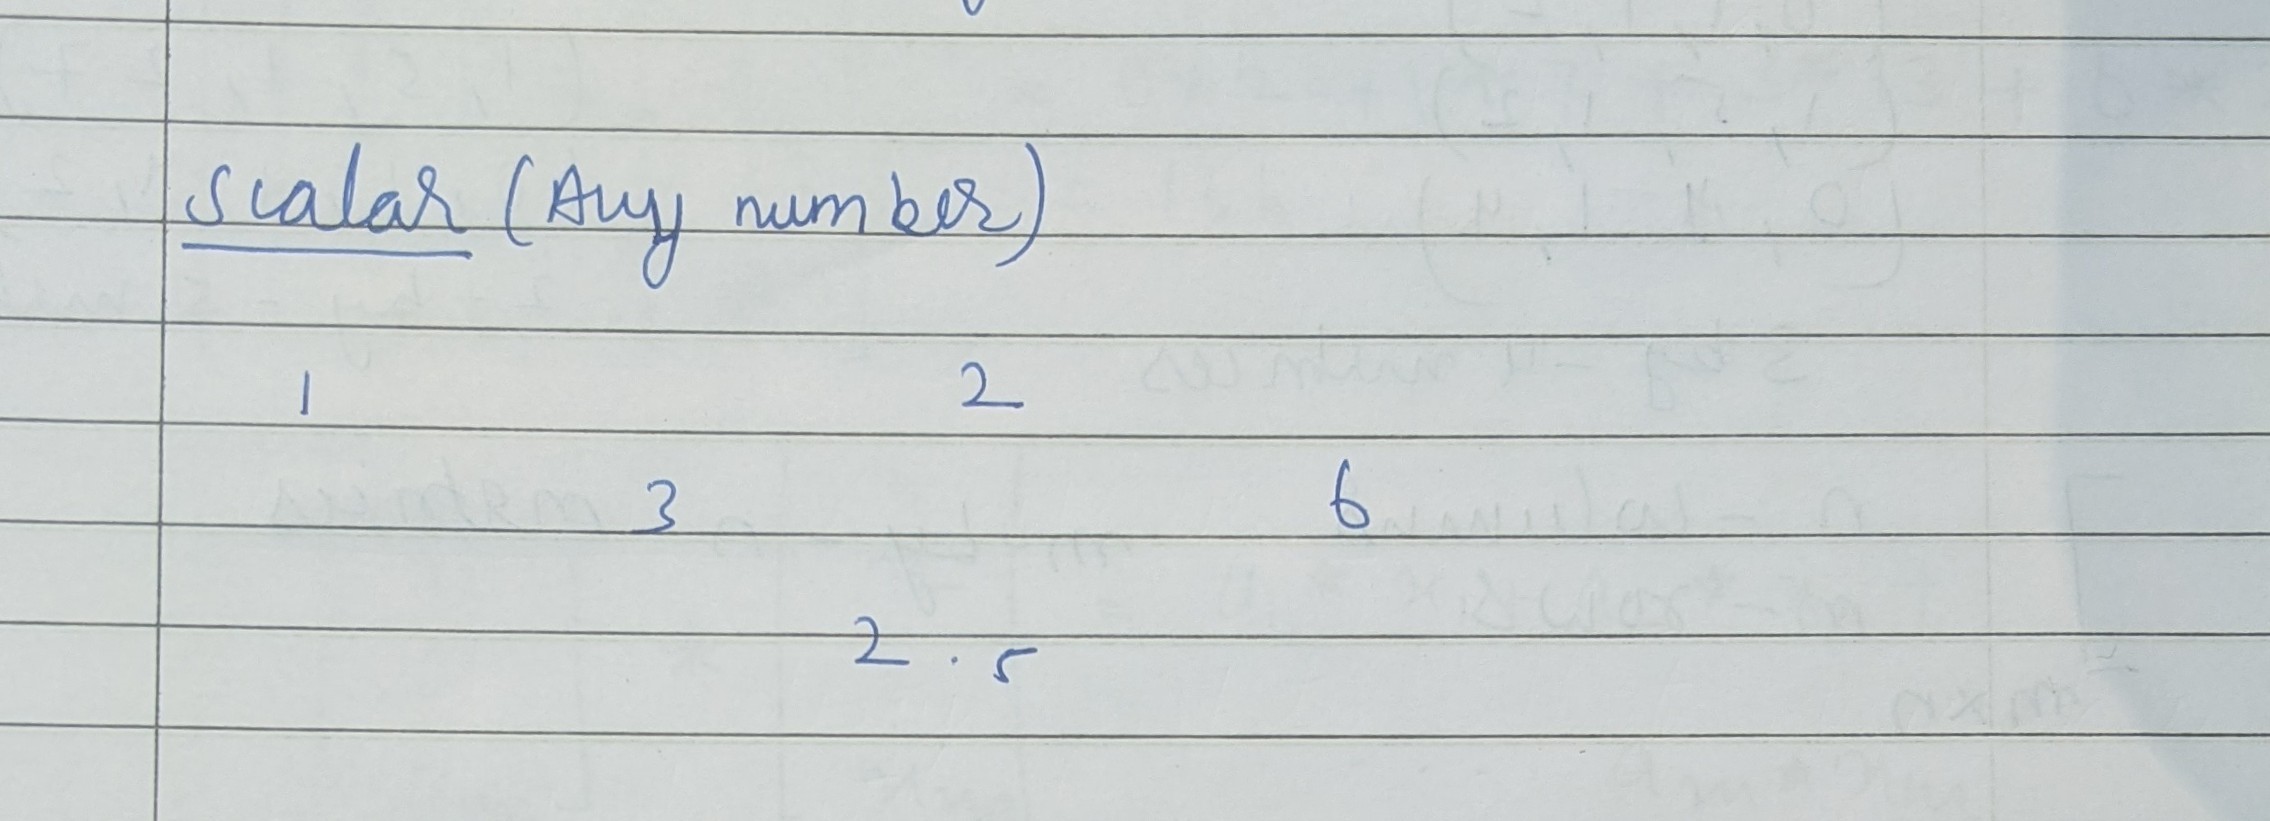 Scalar (Any number)
1 2
3 6
2.5